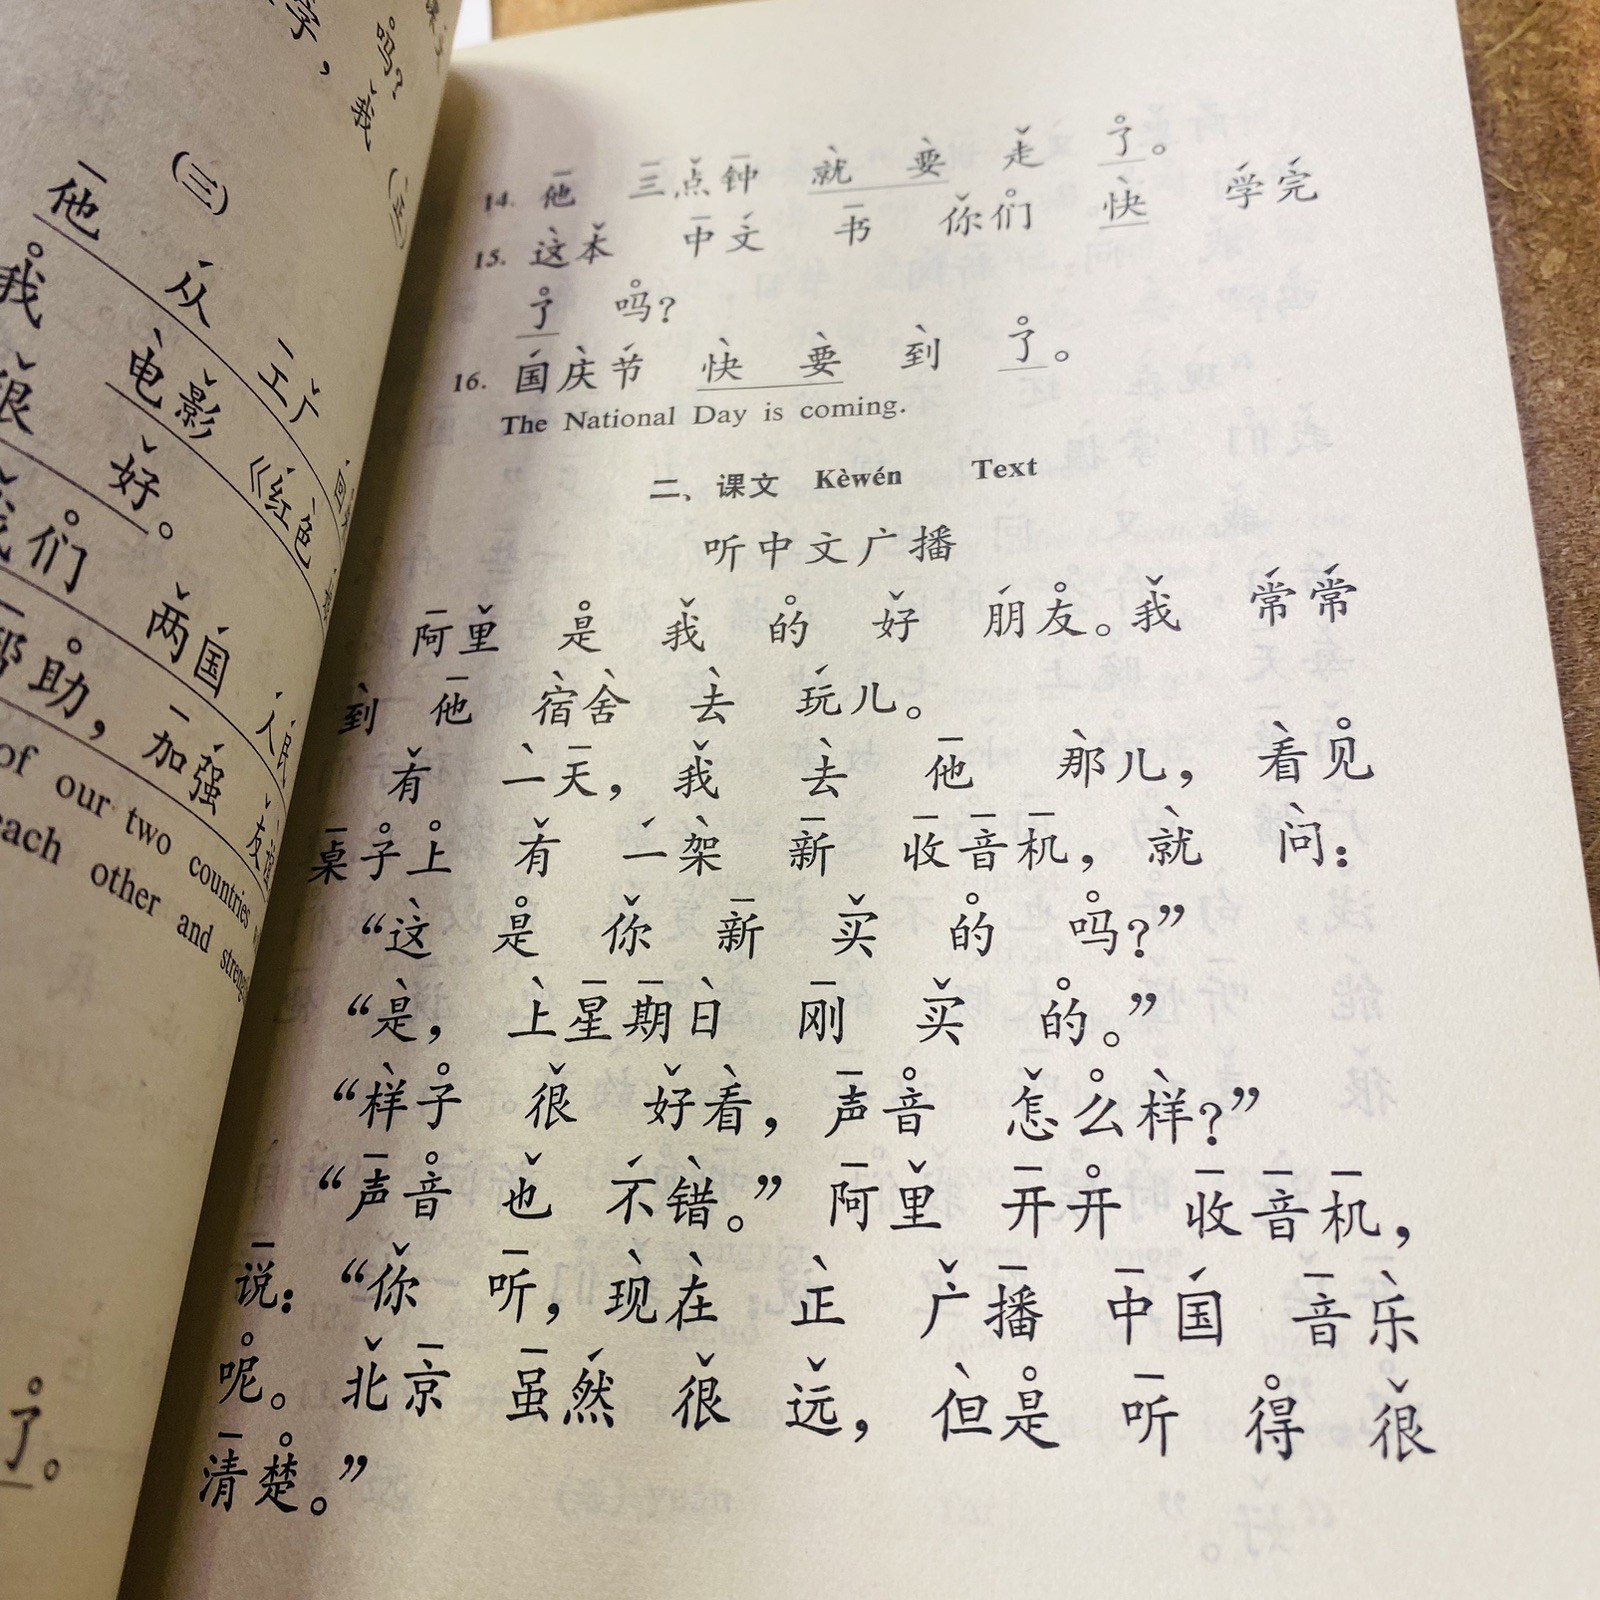 字，
吗？
我
(三)
他 从 工厂 回
我 电影 《红色
很 好。
我们 两国 人民
帮助，加强 友谊
of our two countries
each other and
了。
14. 他 三点钟 就 要 走 了。
15. 这本 中文 书 你们 快 学完
了 吗？
16. 国庆节 快 要 到 了。
The National Day is coming.
二、课文 Kèwén Text
听中文广播
阿里 是 我 的 好 朋友。我 常常
到 他 宿舍 去 玩儿。
有 一天，我 去 他 那儿，看见
桌子上 有 一架 新 收音机，就 问：
“这 是 你 新 买 的 吗？”
“是，上星期日 刚 买 的。”
“样子 很 好看，声音 怎么样？”
“声音 也 不错。”阿里 开开 收音机，
说：“你 听，现在 正 广播 中国 音乐
呢。北京 虽然 很 远，但是 听 得 很
清楚。”